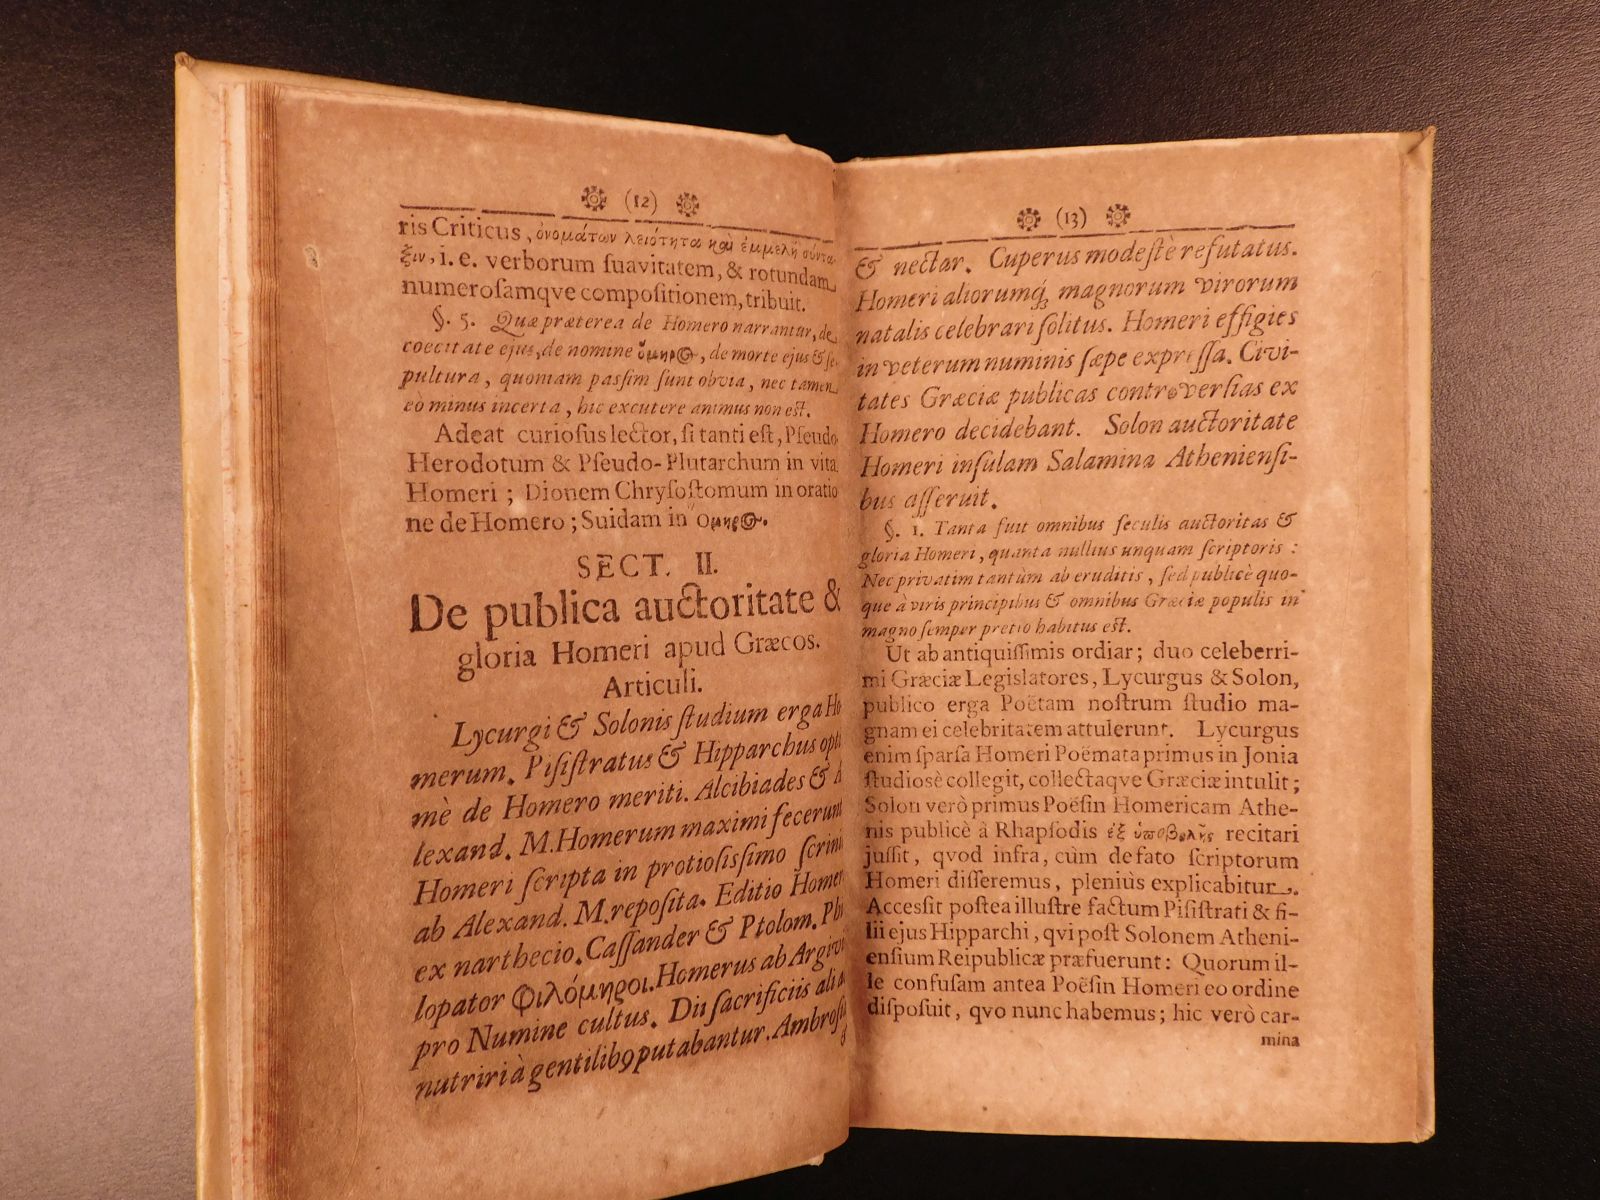 (12)
ris Criticus, ὀνομάτων λειότητα καὶ ἐμμελῆ σύντα-
ξιν, i. e. verborum suavitatem, & rotundam
numerosamqve compositionem, tribuit.
§. 5. Quæ præterea de Homero narrantur, de
coecitate ejus, de nomine ὅμηρος, de morte ejus & se-
pultura, quoniam passim sunt obvia, nec tamen
eò minus incerta, hic excutere animus non est.
Adeat curiosus lector, si tanti est, Pseudo-
Herodotum & Pseudo-Plutarchum in vita
Homeri; Dionem Chrysostomum in oratio
ne de Homero; Suidam in Ὅμηρος.
SECT. II.
De publica auctoritate &
gloria Homeri apud Græcos.
Articuli.
Lycurgi & Solonis studium erga Ho
merum. Pisistratus & Hipparchus opti
mè de Homero meriti. Alcibiades & A
lexand. M. Homerum maximi fecerunt
Homeri scripta in protiosissimo scrini
ab Alexand. M. reposita. Editio Homer
ex narthecio. Cassander & Ptolom. Phi
lopator Φιλόμηροι. Homerus ab Argivi
pro Numine cultus. Dii sacrificiis ali a
nutriri à gentilibꝰ putabantur. Ambrosia
&
(13)
& nectar. Cuperus modestè refutatus.
Homeri aliorumq́; magnorum virorum
natalis celebrari solitus. Homeri effigies
in veterum numinis sæpe expressa. Civi-
tates Græciæ publicas controversias ex
Homero decidebant. Solon auctoritate
Homeri insulam Salamina Atheniensi-
bus asseruit.
§. 1. Tanta fuit omnibus seculis auctoritas &
gloria Homeri, quanta nullius unquam scriptoris:
Nec privatim tantùm ab eruditis, sed publicè quo-
que à viris principibus & omnibus Græciæ populis in
magno semper pretio habitus est.
Ut ab antiquissimis ordiar; duo celeberri-
mi Græciæ Legislatores, Lycurgus & Solon,
publico erga Poëtam nostrum studio ma-
gnam ei celebritatem attulerunt. Lycurgus
enim sparsa Homeri Poëmata primus in Jonia
studiosè collegit, collectaqve Græciæ intulit;
Solon verò primus Poësin Homericam Athe-
nis publicè à Rhapsodis ἐξ ὑποβολῆς recitari
jussit, qvod infra, cùm de fato scriptorum
Homeri disseremus, pleniùs explicabitur.
Accessit postea illustre factum Pisistrati & fi-
lii ejus Hipparchi, qvi post Solonem Atheni-
ensium Reipublicæ præfuerunt: Quorum il-
le confusam antea Poësin Homeri eo ordine
disposuit, qvo nunc habemus; hic verò car-
mina